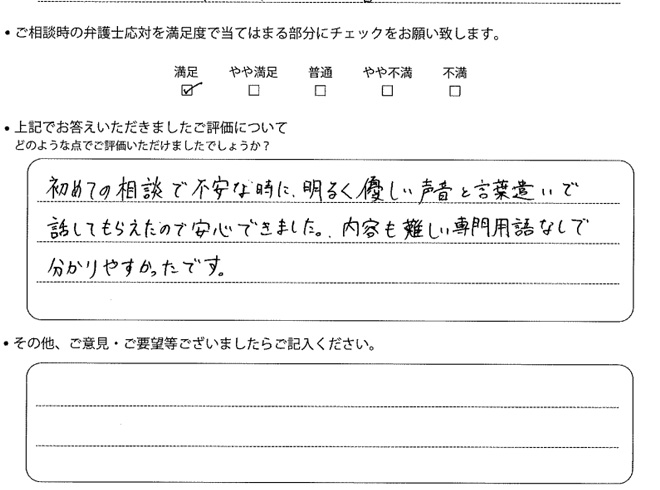 ・ご相談時の弁護士応対を満足度で当てはまる部分にチェックをお願い致します。
満足 やや満足 普通 やや不満 不満
☑ □ □ □ □
・上記でお答えいただきましたご評価について
どのような点でご評価いただけましたでしょうか？
初めての相談で不安な時に、明るく優しい声音と言葉遣いで
話してもらえたので安心できました。内容も難しい専門用語なしで
分かりやすかったです。
・その他、ご意見・ご要望等ございましたらご記入ください。